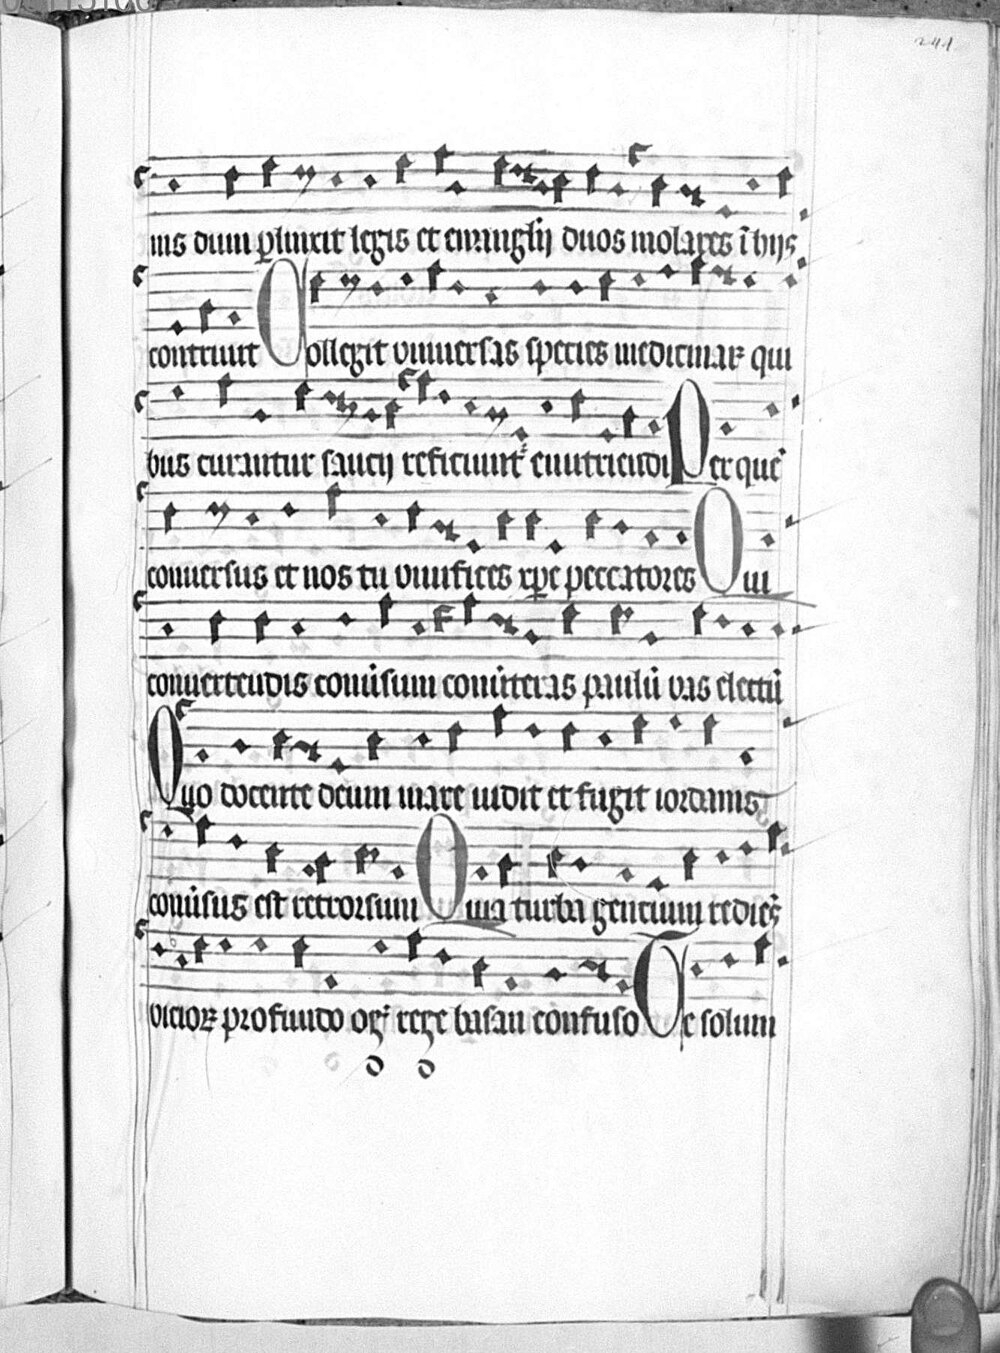 241
nis dum plinxit legis et ewanglij duos molares ī hijs
conteruit Collegit uniuersas species medicinaꝝ qui
bus curantur saucij reficiunt᷑ enutriendi Per quē
conuersus et nos tu uiuifices xp̄e peccatores Qui
conuertendis conuisum conuerteras paulū uas electū
Quo docente deum mare uidit et fugit iordanis
conūsus est retrorsum Quia turba gencium rediens
vicioꝝ profundo og rege basan confuso Te solum